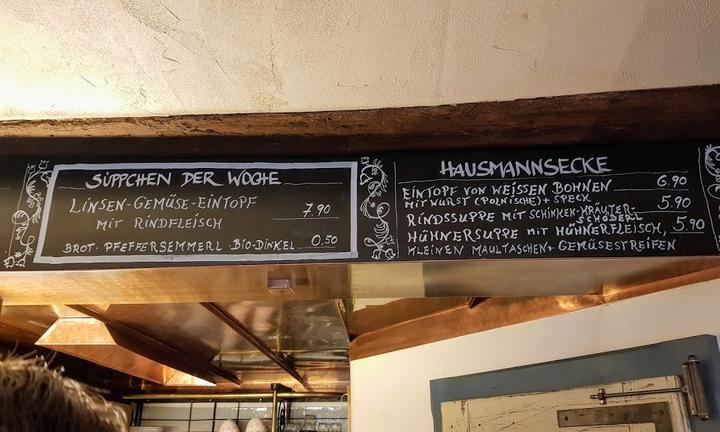 SÜPPCHEN DER WOCHE
LINSEN-GEMÜSE-EINTOPF
MIT RINDFLEISCH 7,90
BROT·PFEFFERSEMMERL·BIO-DINKEL 0,50
HAUSMANNSECKE
EINTOPF VON WEISSEN BOHNEN 6.90
MIT WURST (POLNISCHE) + SPECK
RINDSSUPPE MIT SCHINKEN-KRÄUTER- 5.90
SCHÖBERL
HÜHNERSUPPE MIT HÜHNERFLEISCH, 5,90
KLEINEN MAULTASCHEN + GEMÜSESTREIFEN